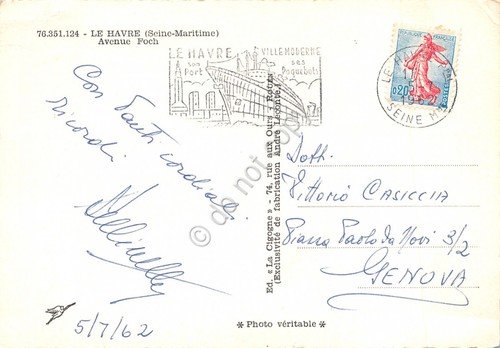 76.351.124 - LE HAVRE (Seine-Maritime)
Avenue Foch
LE HAVRE VILLE MODERNE
son Port ses Paquebots
REPUBLIQUE FRANÇAISE
0,20
POSTES
LE HAVRE
1962
SEINE Mme
Con tanti cordiali
ricordi
5/7/62
Ed. « La Cigogne » - 74, rue aux Ours - Rouen
(Exclusivité de fabrication André Leconte)
Dott.
Vittorio CASICCIA
Piazza Paolo da Novi 3/2
GENOVA
* Photo véritable *
do not copy